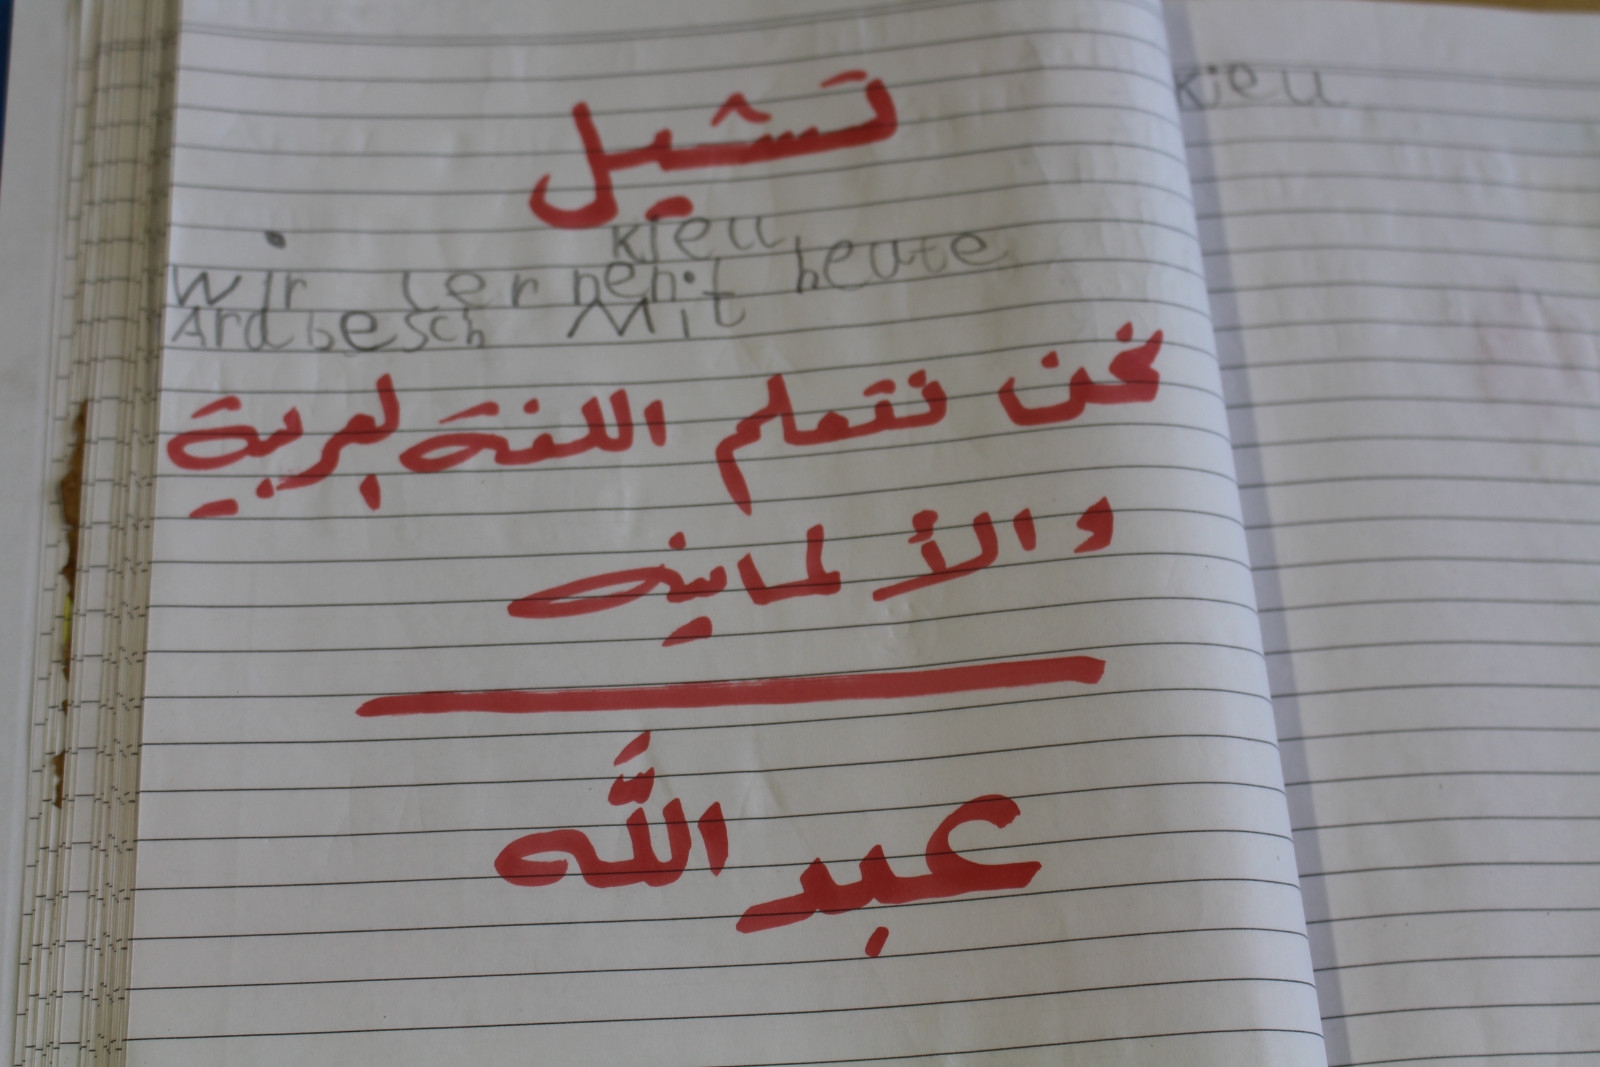 تشيل
kieu
wir lernen it heute
Ardbesch Mit
نحن نتعلم اللغة لعربية
والألمانيه
عبد اللَّه
kieu